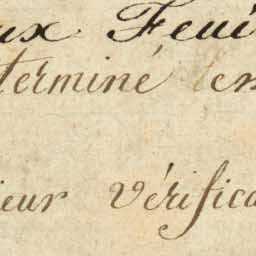 ux Feui
terminé en
ieur vérifica